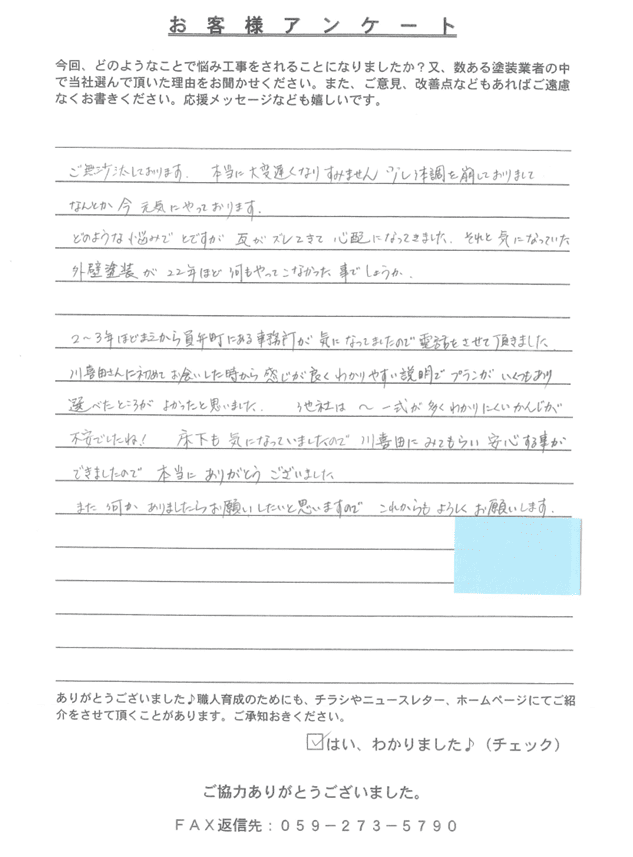 お客様アンケート
今回、どのようなことで悩み工事をされることになりましたか？又、数ある塗装業者の中
で当社選んで頂いた理由をお聞かせください。また、ご意見、改善点などもあればご遠慮
なくお書きください。応援メッセージなども嬉しいです。
ご無沙汰しております。 本当に大変遅くなりすみません 少し体調を崩しておりまして
なんとか今 元気にやっております。
どのような悩みで とですが 瓦がズレてきて 心配になってきました。それと気になっていた
外壁塗装が 22年ほど 何もやってこなかった 事でしょうか。
2〜3年ほどまえから員弁町にある事務所が 気になってましたので電話をさせて頂きました。
川喜田さんに初めてお会いした時から 感じが良く わかりやすい説明で プランが いくつもあり
選べたところが よかったと思いました。 他社は 〜一式が多くわかりにくいかんじが
不安でしたね！ 床下も気になっていましたので 川喜田にみてもらい 安心する事が
できましたので 本当に ありがとう ございました
また 何か ありましたらお願いしたいと思いますので これからも よろしく お願いします。
ありがとうございました♪職人育成のためにも、チラシやニュースレター、ホームページにてご紹
介をさせて頂くことがあります。ご承知おきください。
☑はい、わかりました♪（チェック）
ご協力ありがとうございました。
ＦＡＸ返信先：０５９－２７３－５７９０